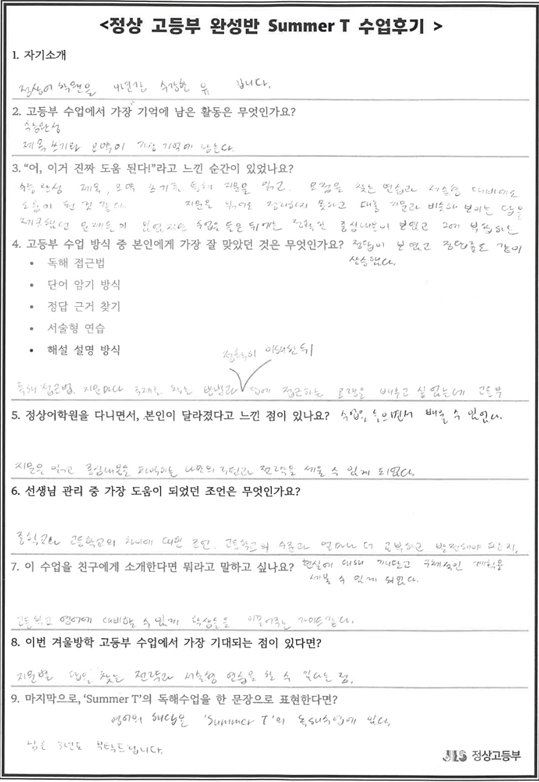 <정상 고등부 완성반 Summer T 수업후기 >
1. 자기소개
정상어학원을 수강한 입니다.
2. 고등부 수업에서 가장 기억에 남은 활동은 무엇인가요?
수능완성
제목 쓰기와 요약이 가장 기억에 남는다.
3. “어, 이거 진짜 도움 된다!”라고 느낀 순간이 있었나요?
수능완성 제목, 요약 쓰기를 통해 지문을 읽고 요점을 찾는 연습과 서술형 대비에도
도움이 된 것 같다. 지문을 읽어도 정리하지 못하고 대충 지문과 비슷해 보이는 답을
체크했던 문제들이 있었지만 수업을 들은 뒤에는 정확한 중심내용이 보였고 그에 부합하는
4. 고등부 수업 방식 중 본인에게 가장 잘 맞았던 것은 무엇인가요? 정답이 보였고 정답률도 같이
상승했다.
• 독해 접근법
• 단어 암기 방식
• 정답 근거 찾기
• 서술형 연습
• 해설 설명 방식
정확히 이해한 뒤
독해 접근법. 지문마다 주제를 찾는 방법과 답에 접근하는 요령을 배우고 싶었는데 고등부
5. 정상어학원을 다니면서, 본인이 달라졌다고 느낀 점이 있나요? 수업을 들으면서 배울 수 있었다.
지문을 읽고 중심내용을 파악하는 나만의 직관과 전략을 세울 수 있게 되었다.
6. 선생님 관리 중 가장 도움이 되었던 조언은 무엇인가요?
중학교와 고등학교의 차이에 대한 조언. 고등학교의 수준과 얼마나 더 공부하고 발전해야 하는지,
7. 이 수업을 친구에게 소개한다면 뭐라고 말하고 싶나요? 현실에 대해 깨닫고 구체적인 계획을
세울 수 있게 되었다.
고등학교 영어에 대비할 수 있게 학생들을 이끌어주는 가이드같다.
8. 이번 겨울방학 고등부 수업에서 가장 기대되는 점이 있다면?
지문별 답을 찾는 전략과 서술형 연습을 할 수 있다는 점.
9. 마지막으로, ‘Summer T’의 독해수업을 한 문장으로 표현한다면?
영어의 해답은 ‘Summer T’의 독해수업에 있다.
남은 3년도 부탁드립니다.
JLS 정상고등부